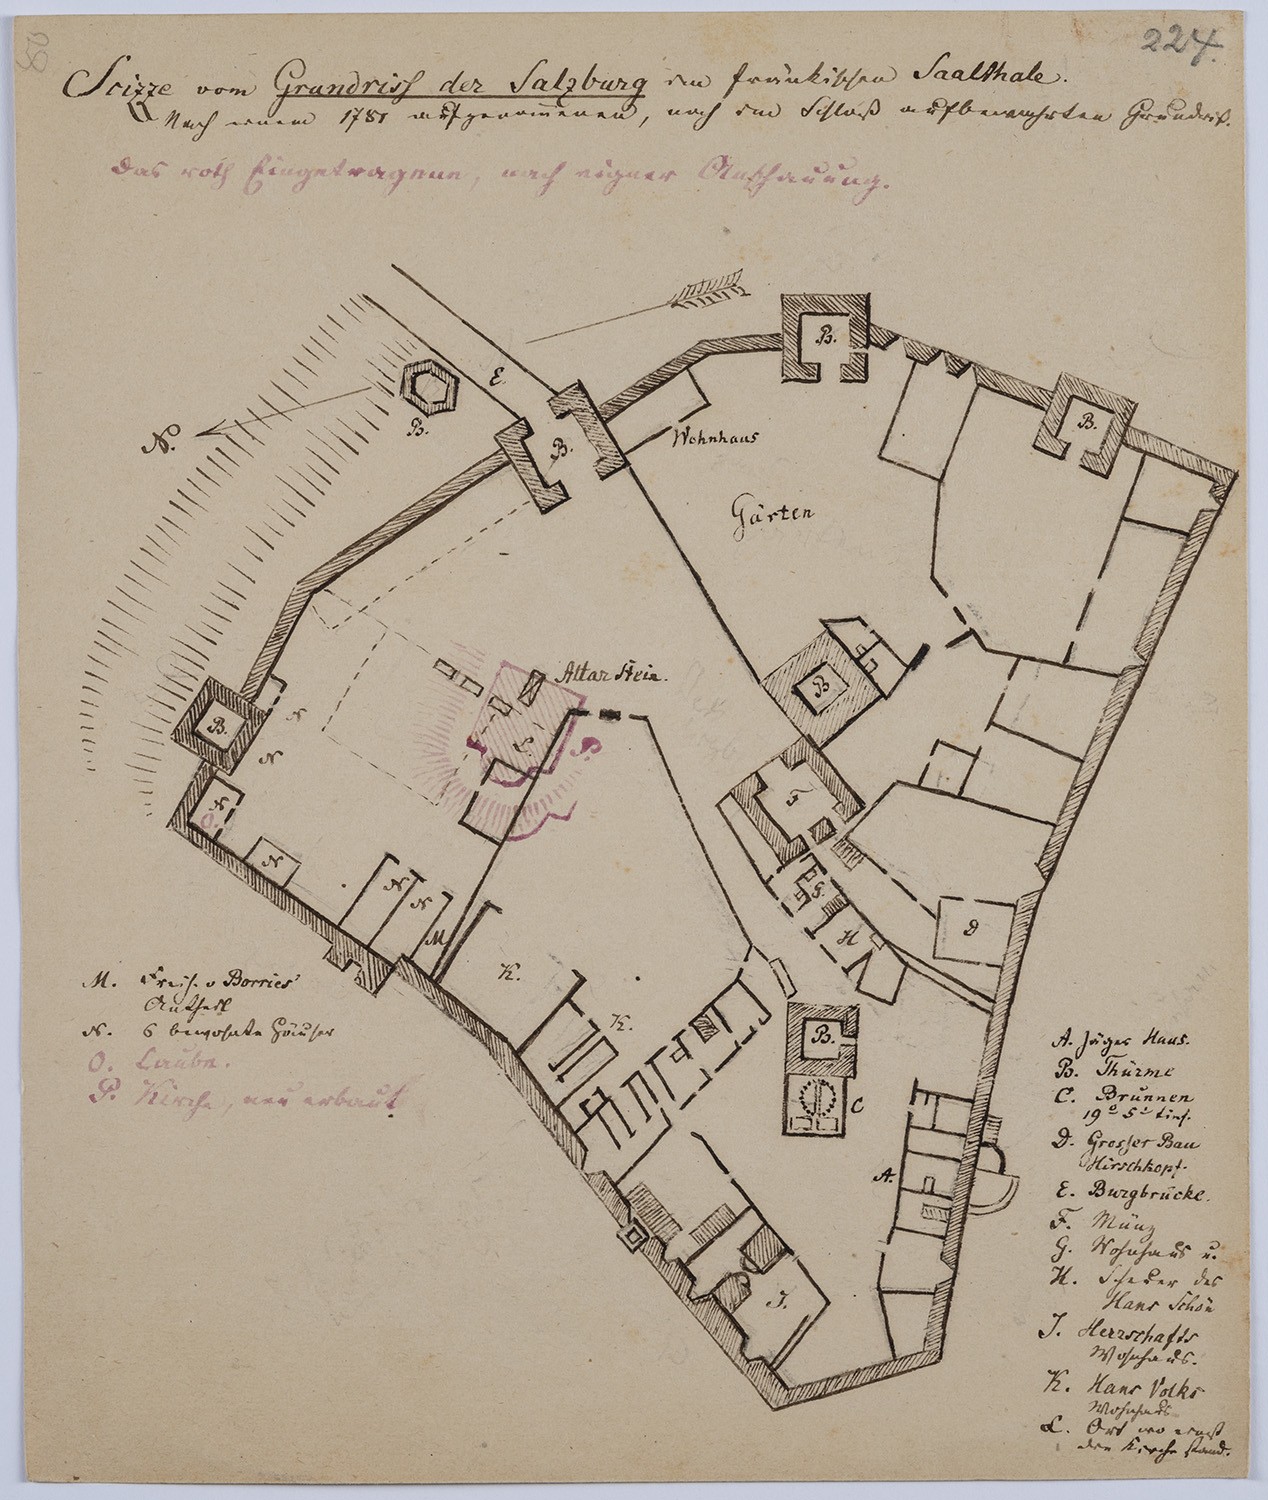 224.
Scizze vom Grundriss der Salzburg im fränkischen Saalthale.
Nach einem 1781 aufgenommenen, noch im Schloß aufbewahrten Grundriß.
das roth Eingetragene, nach eigner Anschauung.
B.
E
B.
B.
N.
B.
B.
Wohnhaus
Gärten
Altar Stein.
B
B.
N
N
L
P.
F
N
O.
N
G.
N
N
M
H
D
K.
K.
B.
C
A.
J.
M. Freih. v Borries'
Antheil
N. 6 bewohnte Häuser
O. Laube.
P. Kirche, neu erbaut.
A. Jäger Haus.
B. Thürme
C. Brunnen
tief.
D. Grosser Bau
Hirschkopf.
E. Burgbrücke.
F. Münz
G. Wohnhaus u.
H. Scheuer des
Hans Schön
J. Herrschafts
Wohnhaus.
K. Hans Volks
Wohnhaus
L. Ort wo einst
die Kirche stand.